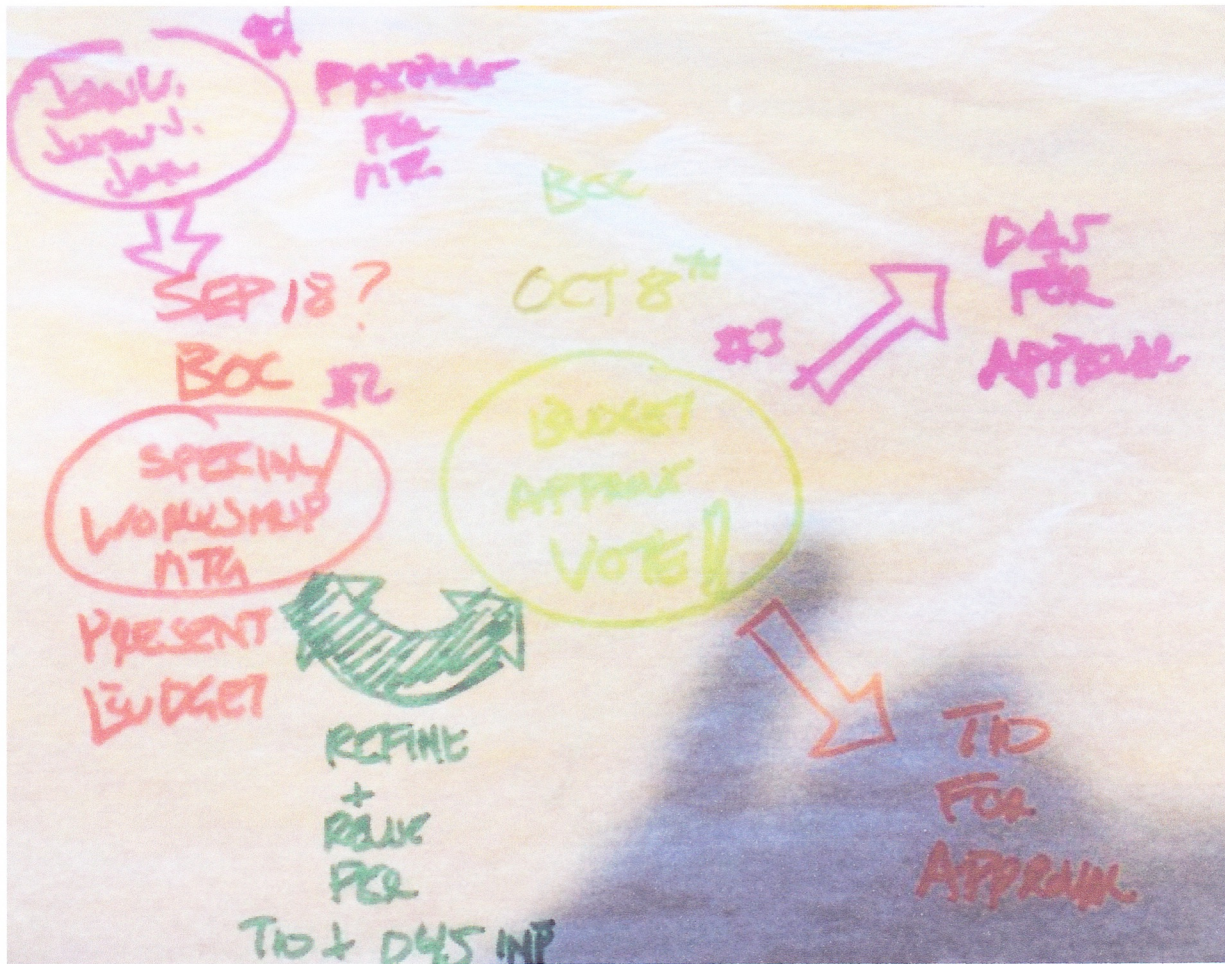 #1
JOHN V.
JOHN J.
JEN
PER
MTG
SEP 18?
BOC #2
SPECIAL/
WORKSHOP
MTG
PRESENT
BUDGET
REFINE
+
PER
TID + D45 INP
BOC
OCT 8TH
BUDGET
APPROVE
VOTE!
#3
D45
FOR
APPROVAL
TID
FOR
APPROVAL